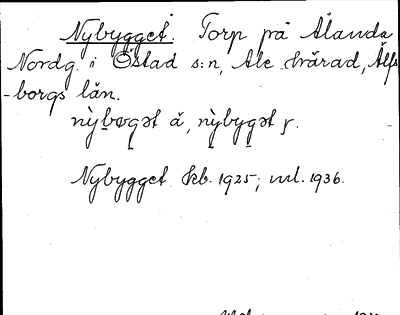 Nybygget. Torp på Ålanda
Nordg. i Östad s:n, Ale härad, Älfs
-borgs län.
nỳbygət å, nỳbygət y.
Nybygget kb. 1925; vul. 1936.